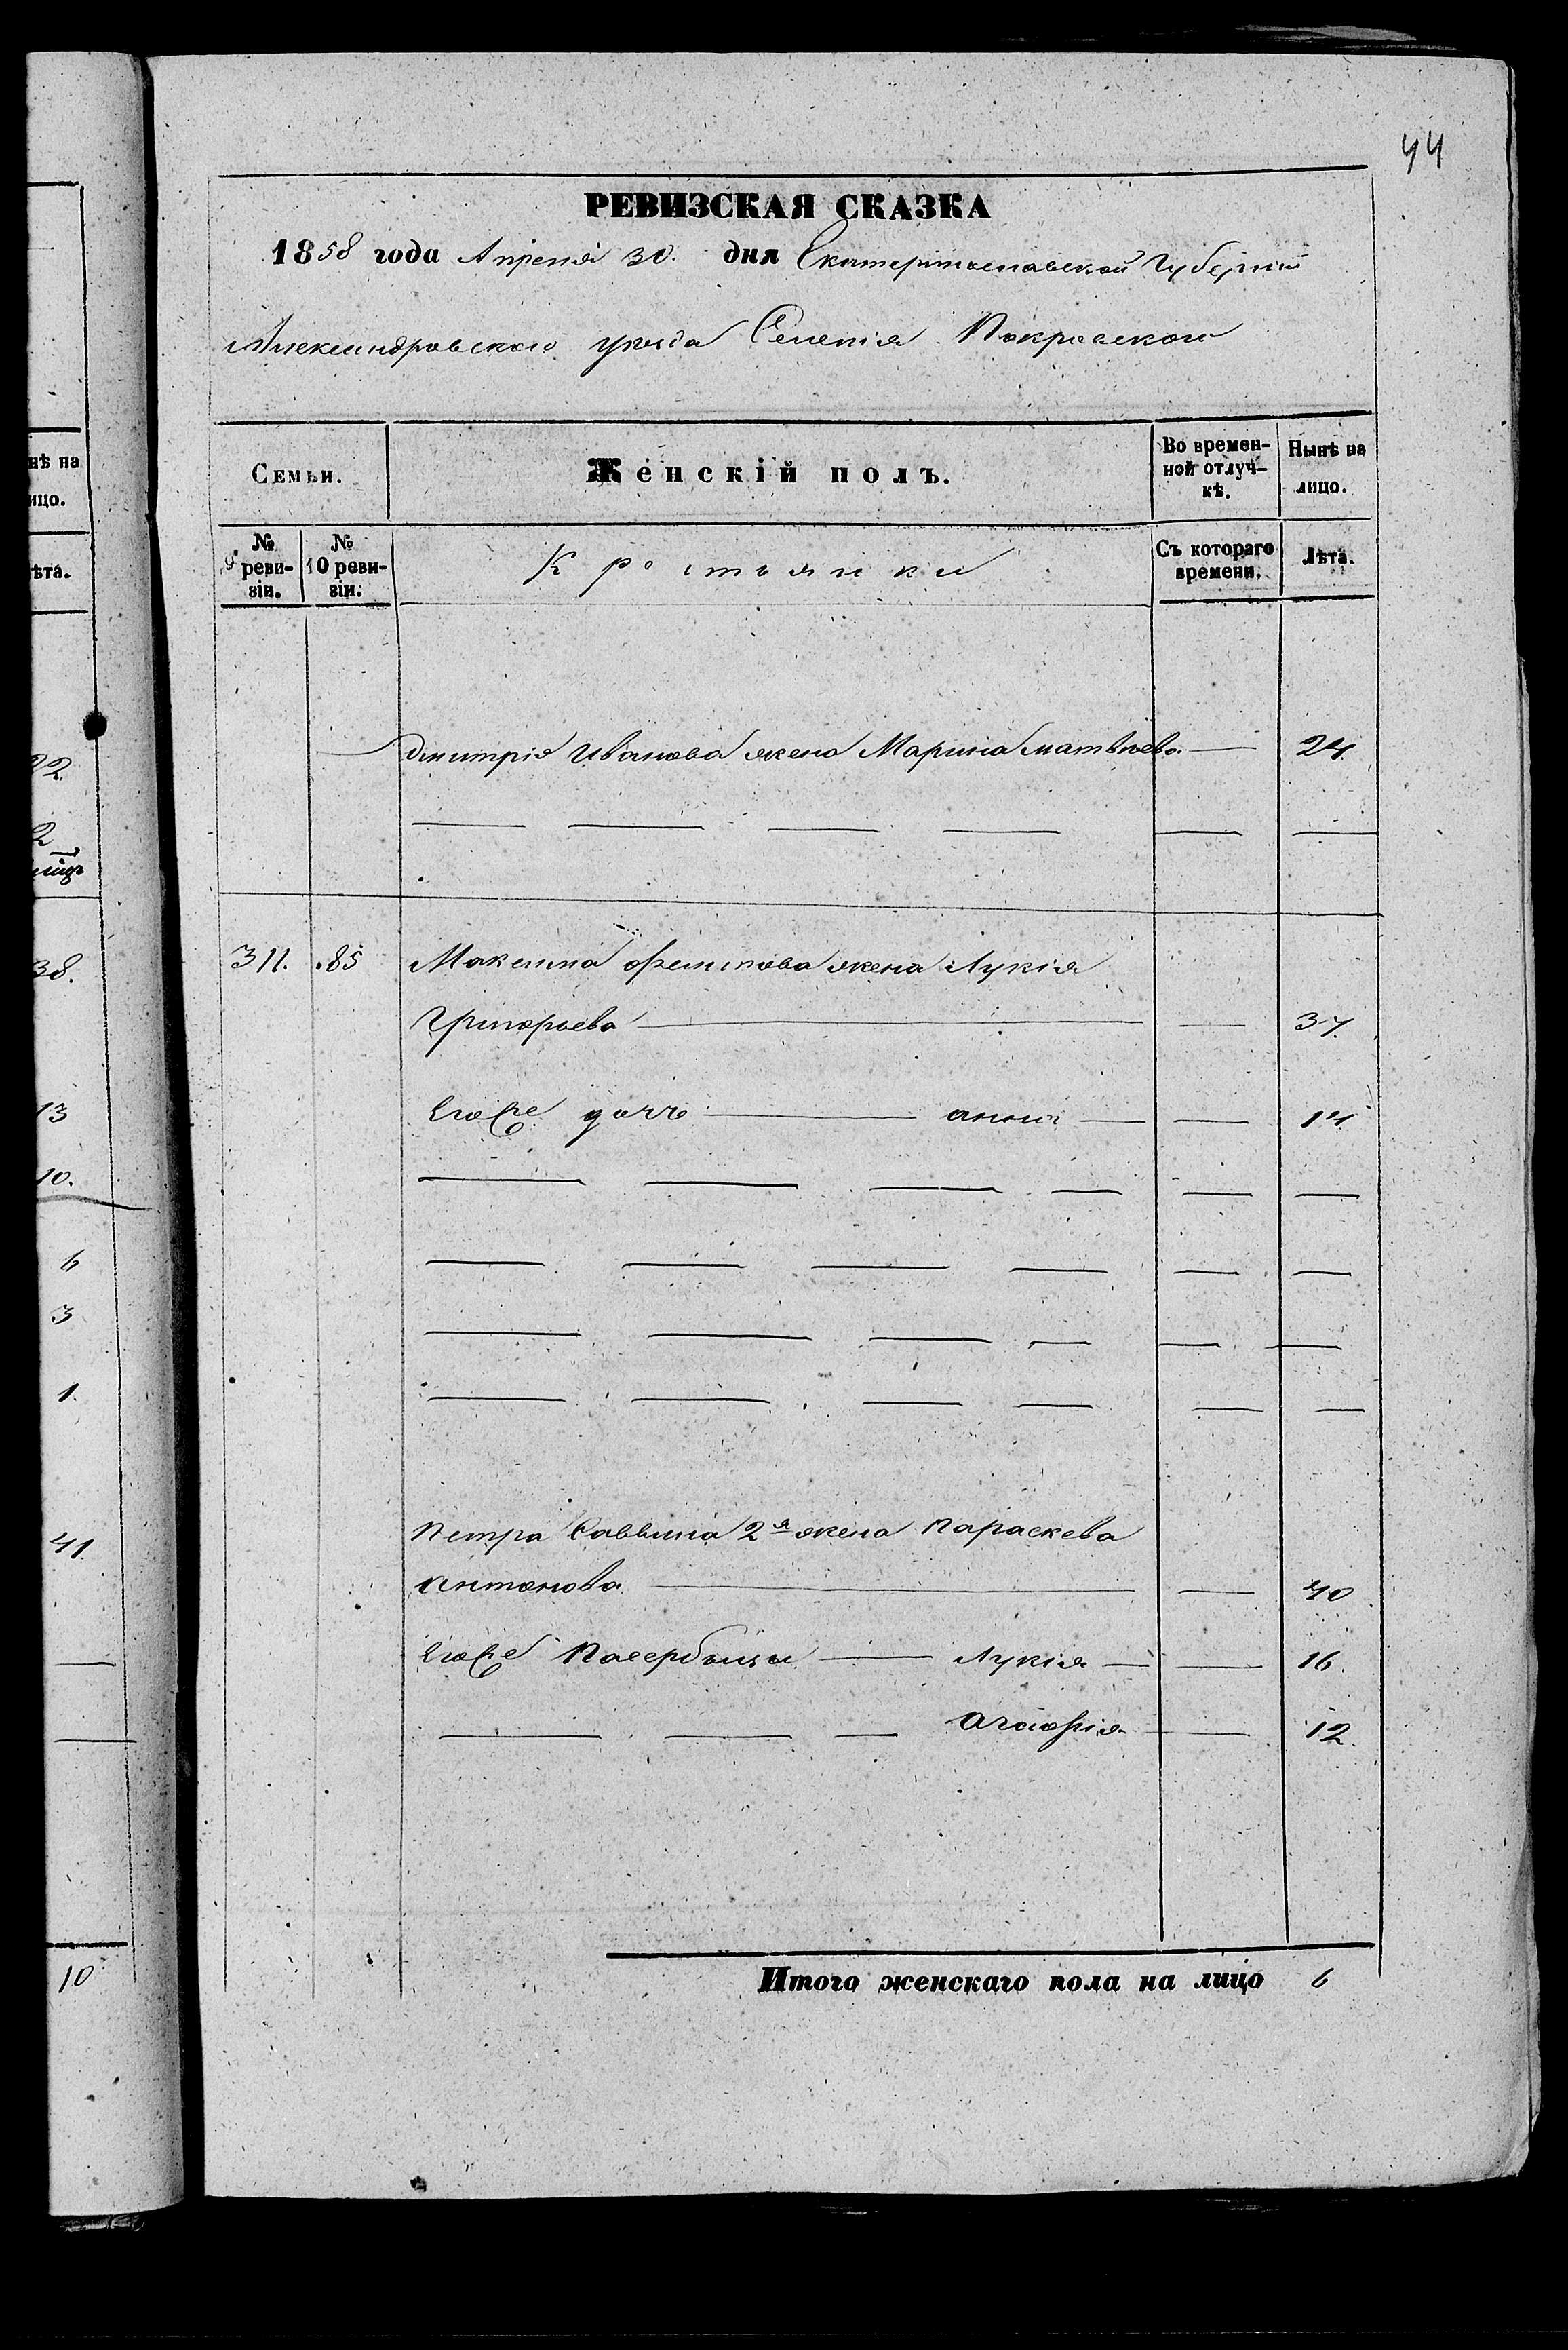 44
РЕВИЗСКАЯ СКАЗКА
1858 года Апреля 30. дня Екатеринославской Губерніи
Александровского уезда Селенія Покровского
Семьи.
Женскій полъ.
Во времен-
ной отлуч-
кѣ.
Нынѣ на
лицо.
№
9 реви-
зіи.
№
10 реви-
зіи.
Крестьянки
Съ котораго
времени.
Лѣта.
Дмитрія Иванова жена Марина Матвѣева 24.
311. 85 Максима Филипова жена Лукія
Григорьева 37.
Его же дочь Анна 14
Петра Саввина 2я жена Параскева
Антонова 40
Его же Пасербицы Лукія 16.
Агафія 12.
Итого женскаго пола на лицо 6
нѣ на
ицо.
ѣта.
22
2
38.
13
10.
6
3
1.
41.
10